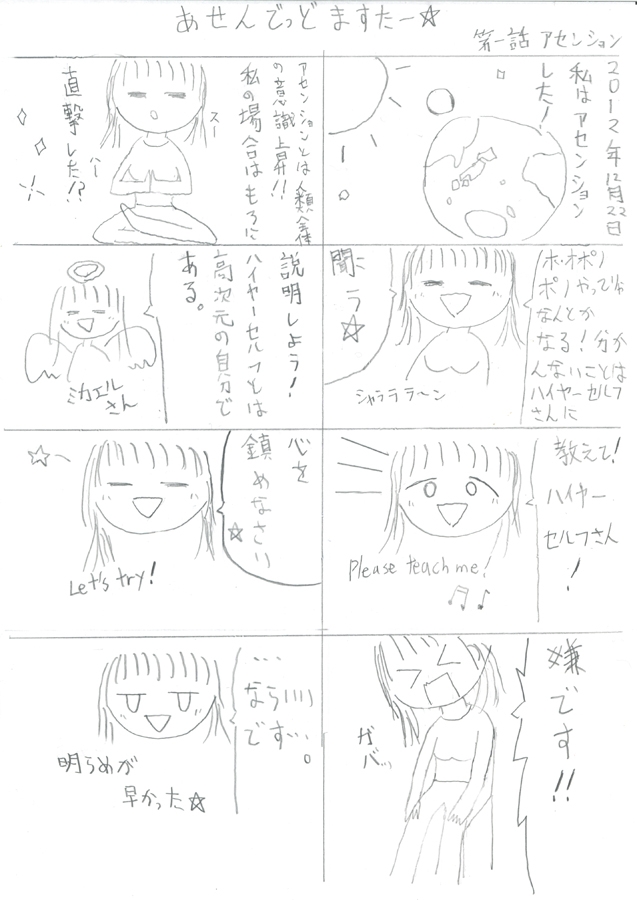 あせんでっど ますたー☆
第一話 アセンション
2012年12月22日
私はアセンション
した!
アセンションとは人類全体
の意識上昇!!
私の場合はもろに
直撃した!?
スー
パー
ホ・オポノ
ポノやってりゃ
なんとか
なる!分か
んないことは
ハイヤーセルフ
さんに
聞こう☆
シャララララ〜ン
説明しよう!
ハイヤーセルフとは
高次元の自分で
ある。
ミカエル
さん
教えて!
ハイヤー
セルフさん
!
Please teach me!
心を
鎮めなさい
☆
Let's try!
嫌です!!
ガバッ
…
ならいい
です…。
明らめが
早かった☆